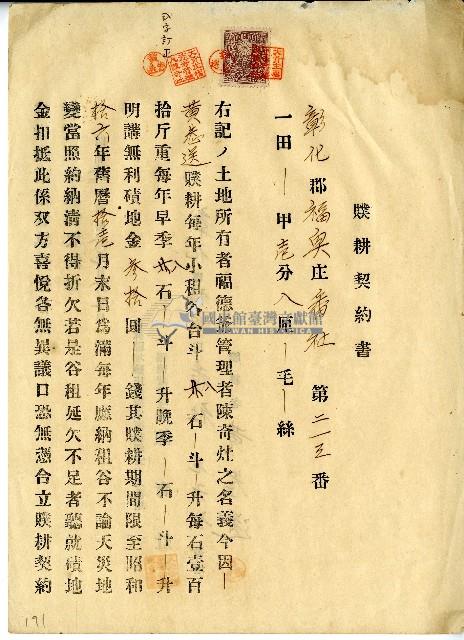 贌耕契約書
彰化郡福興庄番社 第二一三番
一田 ー 甲壱分八厘ー毛ー絲
右記ノ土地所有者福德爺管理者陳奇灶之名義今因ー
黃 送贌耕每年小租谷台斗 石ー斗ー升每石壹百
拾斤重每年早季 石ー斗ー升晚季ー石ー斗ー升
明講無利磧地金參拾圓ー錢其贌耕期間限至昭和
拾六年舊曆拾壱月末日爲滿每年應納租谷不論天災地
變當照約納淸不得折欠若是谷租延欠不足者聽就磧地
金扣抵此係双方喜悅各無異議口恐無憑合立贌耕契約
國史館臺灣文獻館
TAIWAN HISTORICA
191